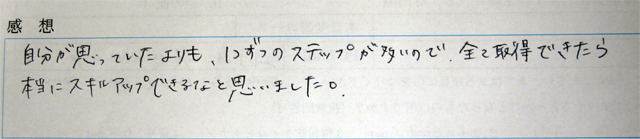 感想
自分が思っていたよりも、1つずつのステップが多いので、全て取得できたら
本当にスキルアップできるなと思いました。